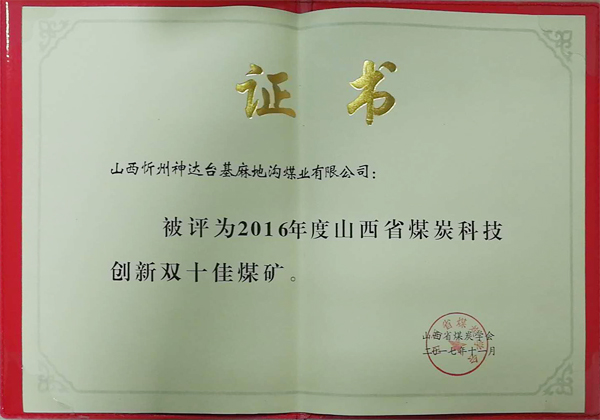 证书
山西忻州神达台基麻地沟煤业有限公司：
被评为2016年度山西省煤炭科技
创新双十佳煤矿。
山西省煤炭学会
二〇一七年十一月